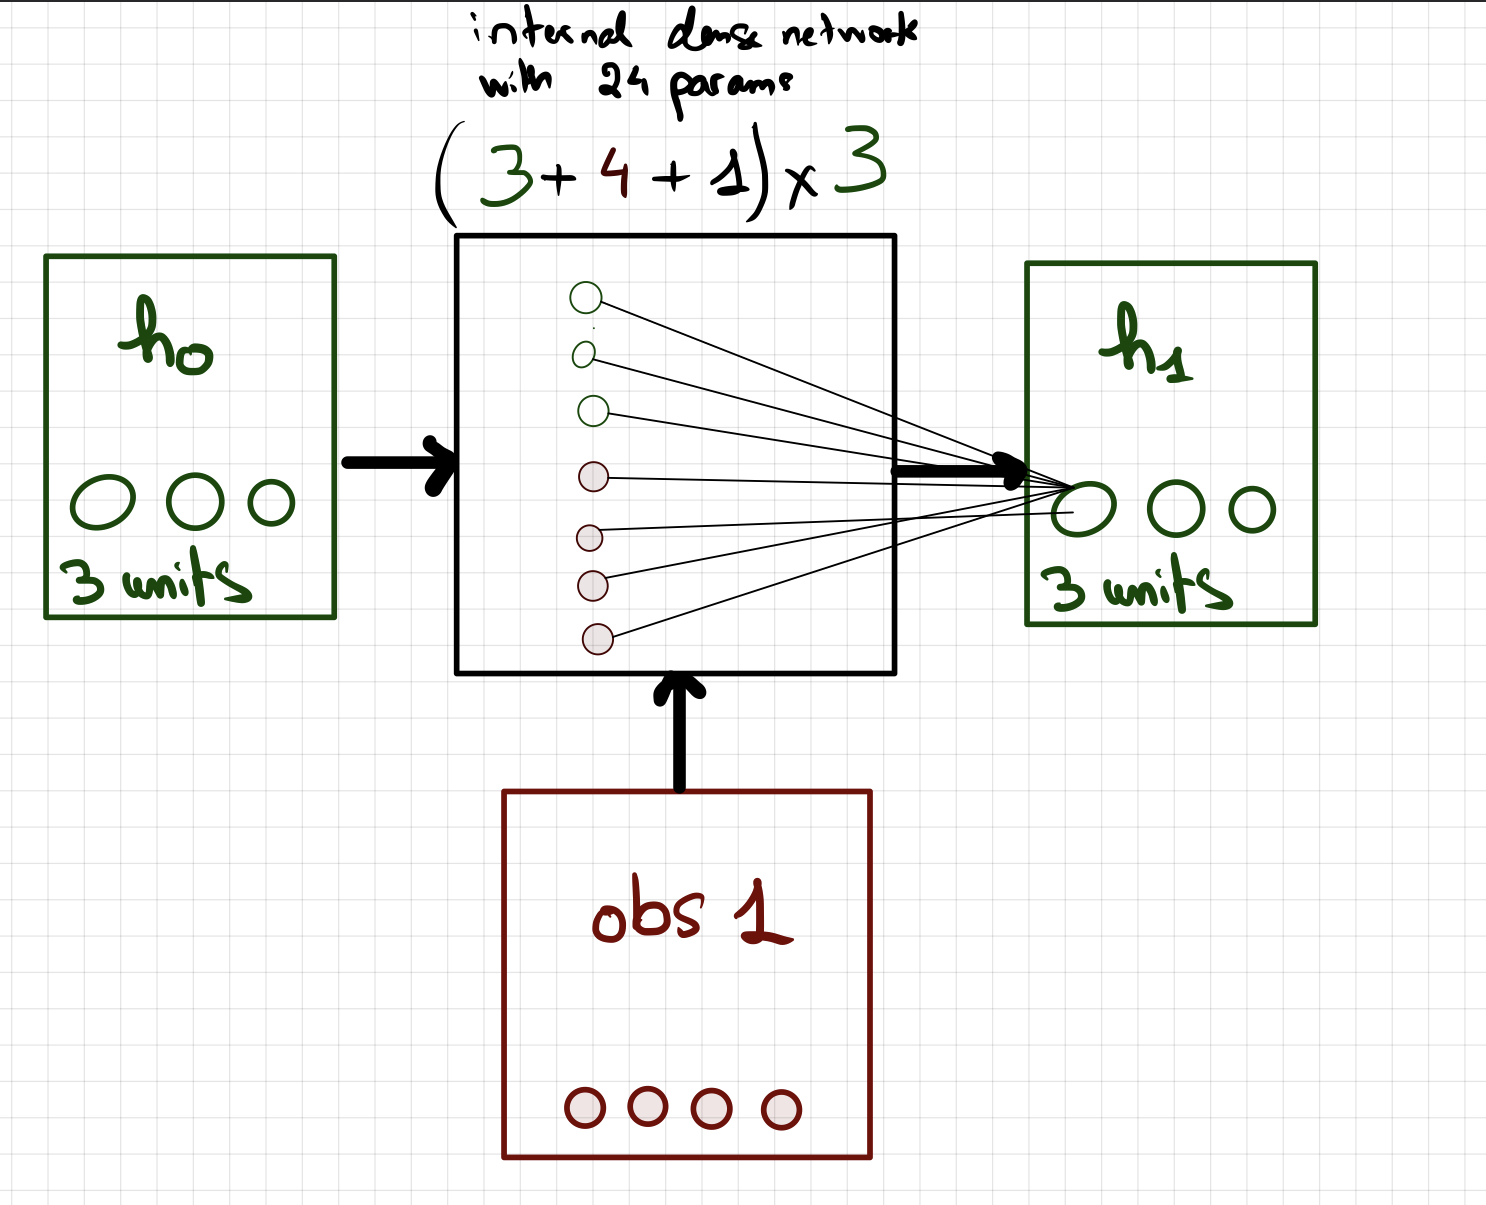 internal dense network
with 24 params
(3+4+1)x3
h0
3 units
h1
3 units
obs 1